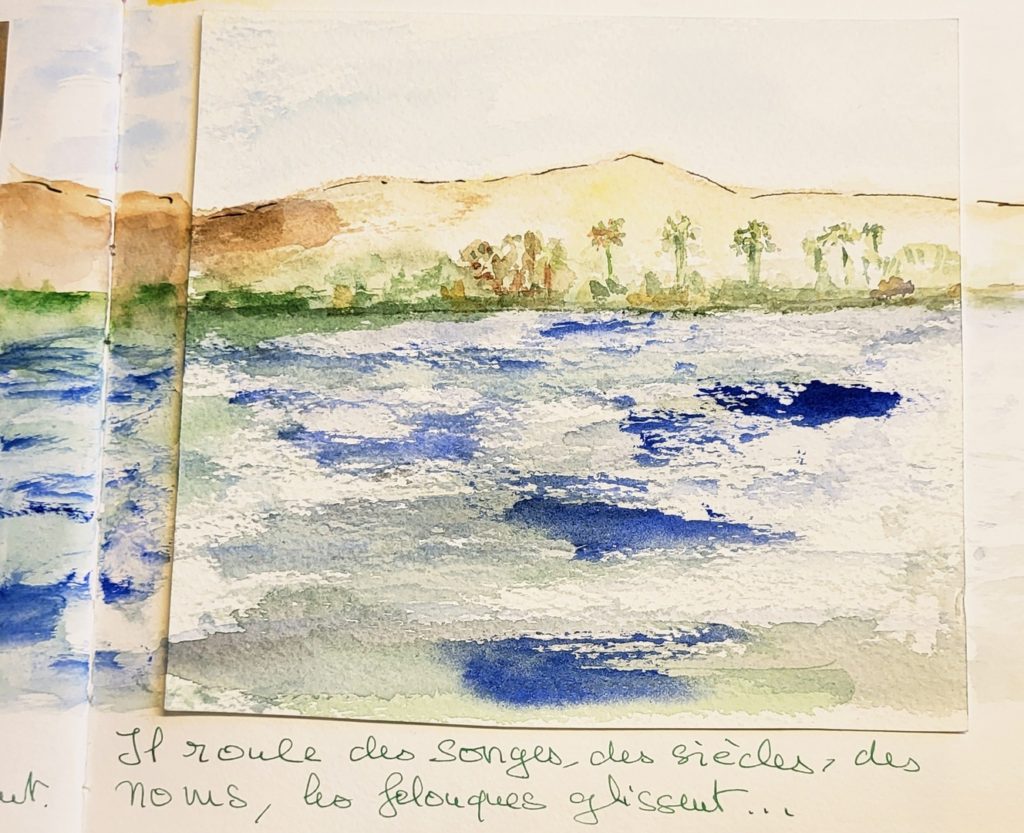 Il roule des songes, des siècles, des
ut. noms, les felouques glissent...